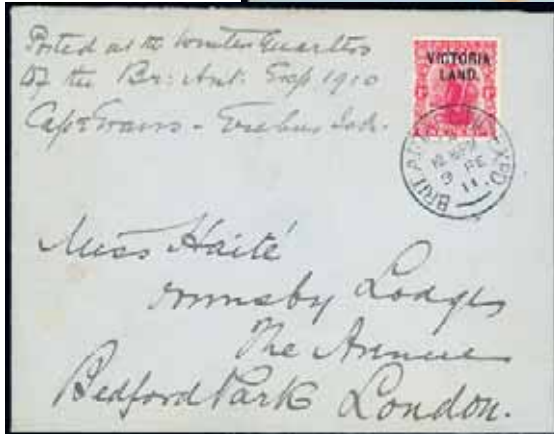 Posted at the Winter Quarters
Of the Br: Ant: Exp. 1910
Cape Evans - Erebus
VICTORIA
LAND.
BRIT. ANTARCTIC EXPD.
9 FE
11
Miss Haité
Ormsby Lodge
The Avenue
Bedford Park London.